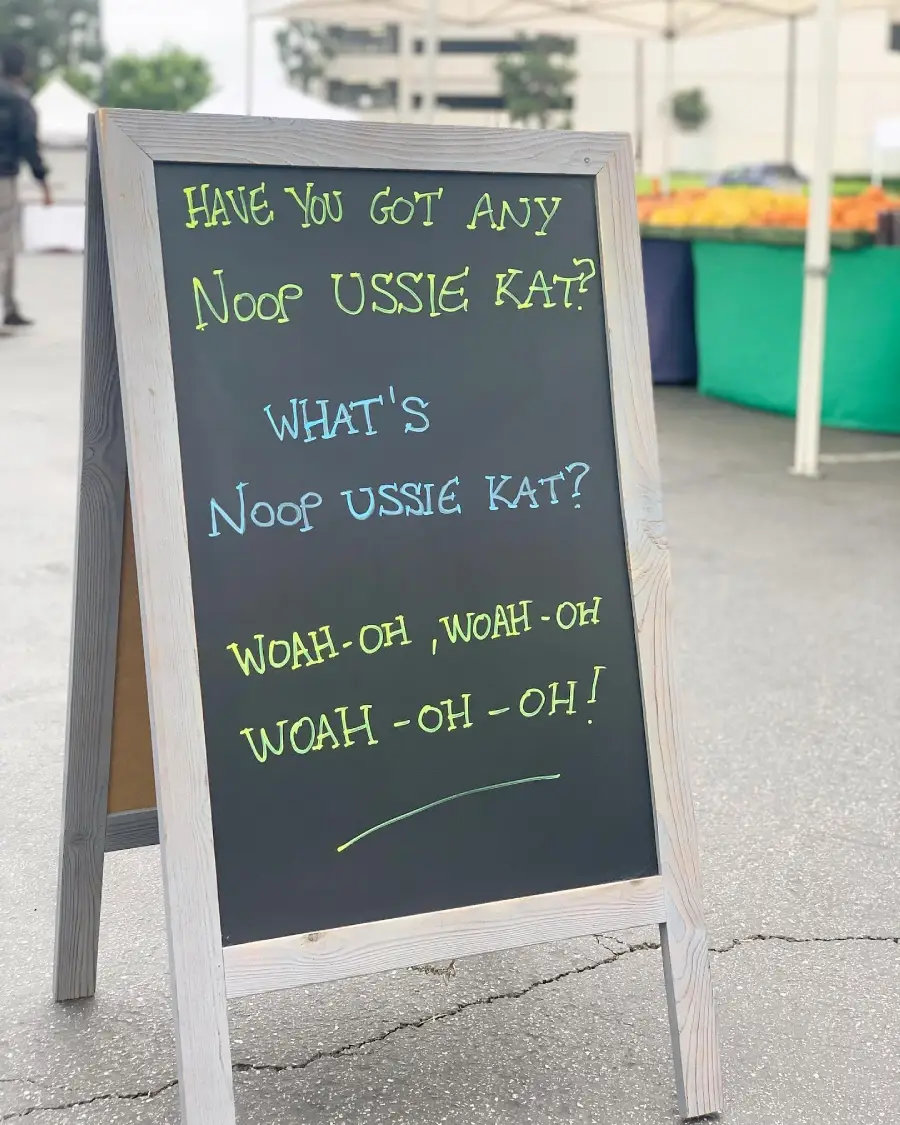 HAVE YOU GOT ANY
NOOP USSIE KAT?
WHAT'S
NOOP USSIE KAT?
WOAH-OH, WOAH-OH
WOAH-OH-OH!